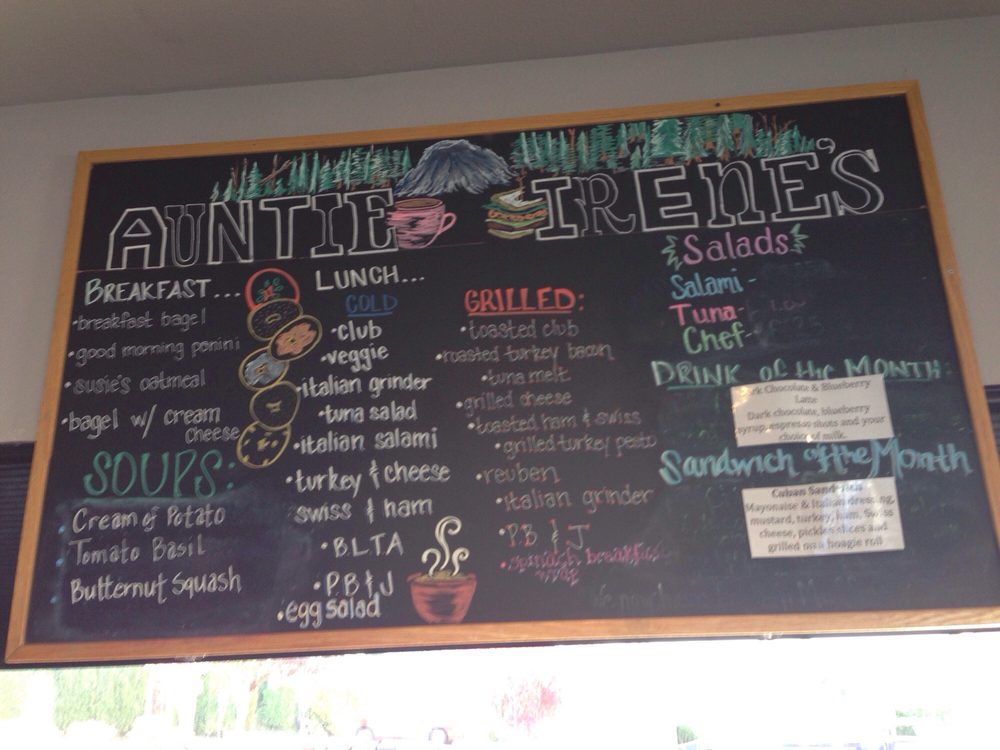 AUNTIE IRENE'S
BREAKFAST...
•breakfast bagel
•good morning panini
•susie's oatmeal
•bagel w/ cream
cheese
SOUPS:
Cream of Potato
Tomato Basil
Butternut Squash
LUNCH...
COLD
•club
•veggie
•italian grinder
•tuna salad
•italian salami
•turkey & cheese
swiss & ham
•BLTA
•PB & J
•egg salad
GRILLED:
•toasted club
•roasted turkey bacon
•tuna melt
•grilled cheese
•toasted ham & swiss
•grilled turkey pesto
•reuben
•italian grinder
•PB & J
•spinach breakfast
wrap
Salads
Salami -
Tuna-
Chef-
DRINK of the MONTH:
Dark Chocolate & Blueberry
Latte
Dark chocolate, blueberry
syrup, espresso shots and your
choice of milk.
Sandwich of the Month
Cuban Sandwich
Mayonaise & Italian dressing,
mustard, turkey, ham, Swiss
cheese, pickles slices and
grilled on a hoagie roll